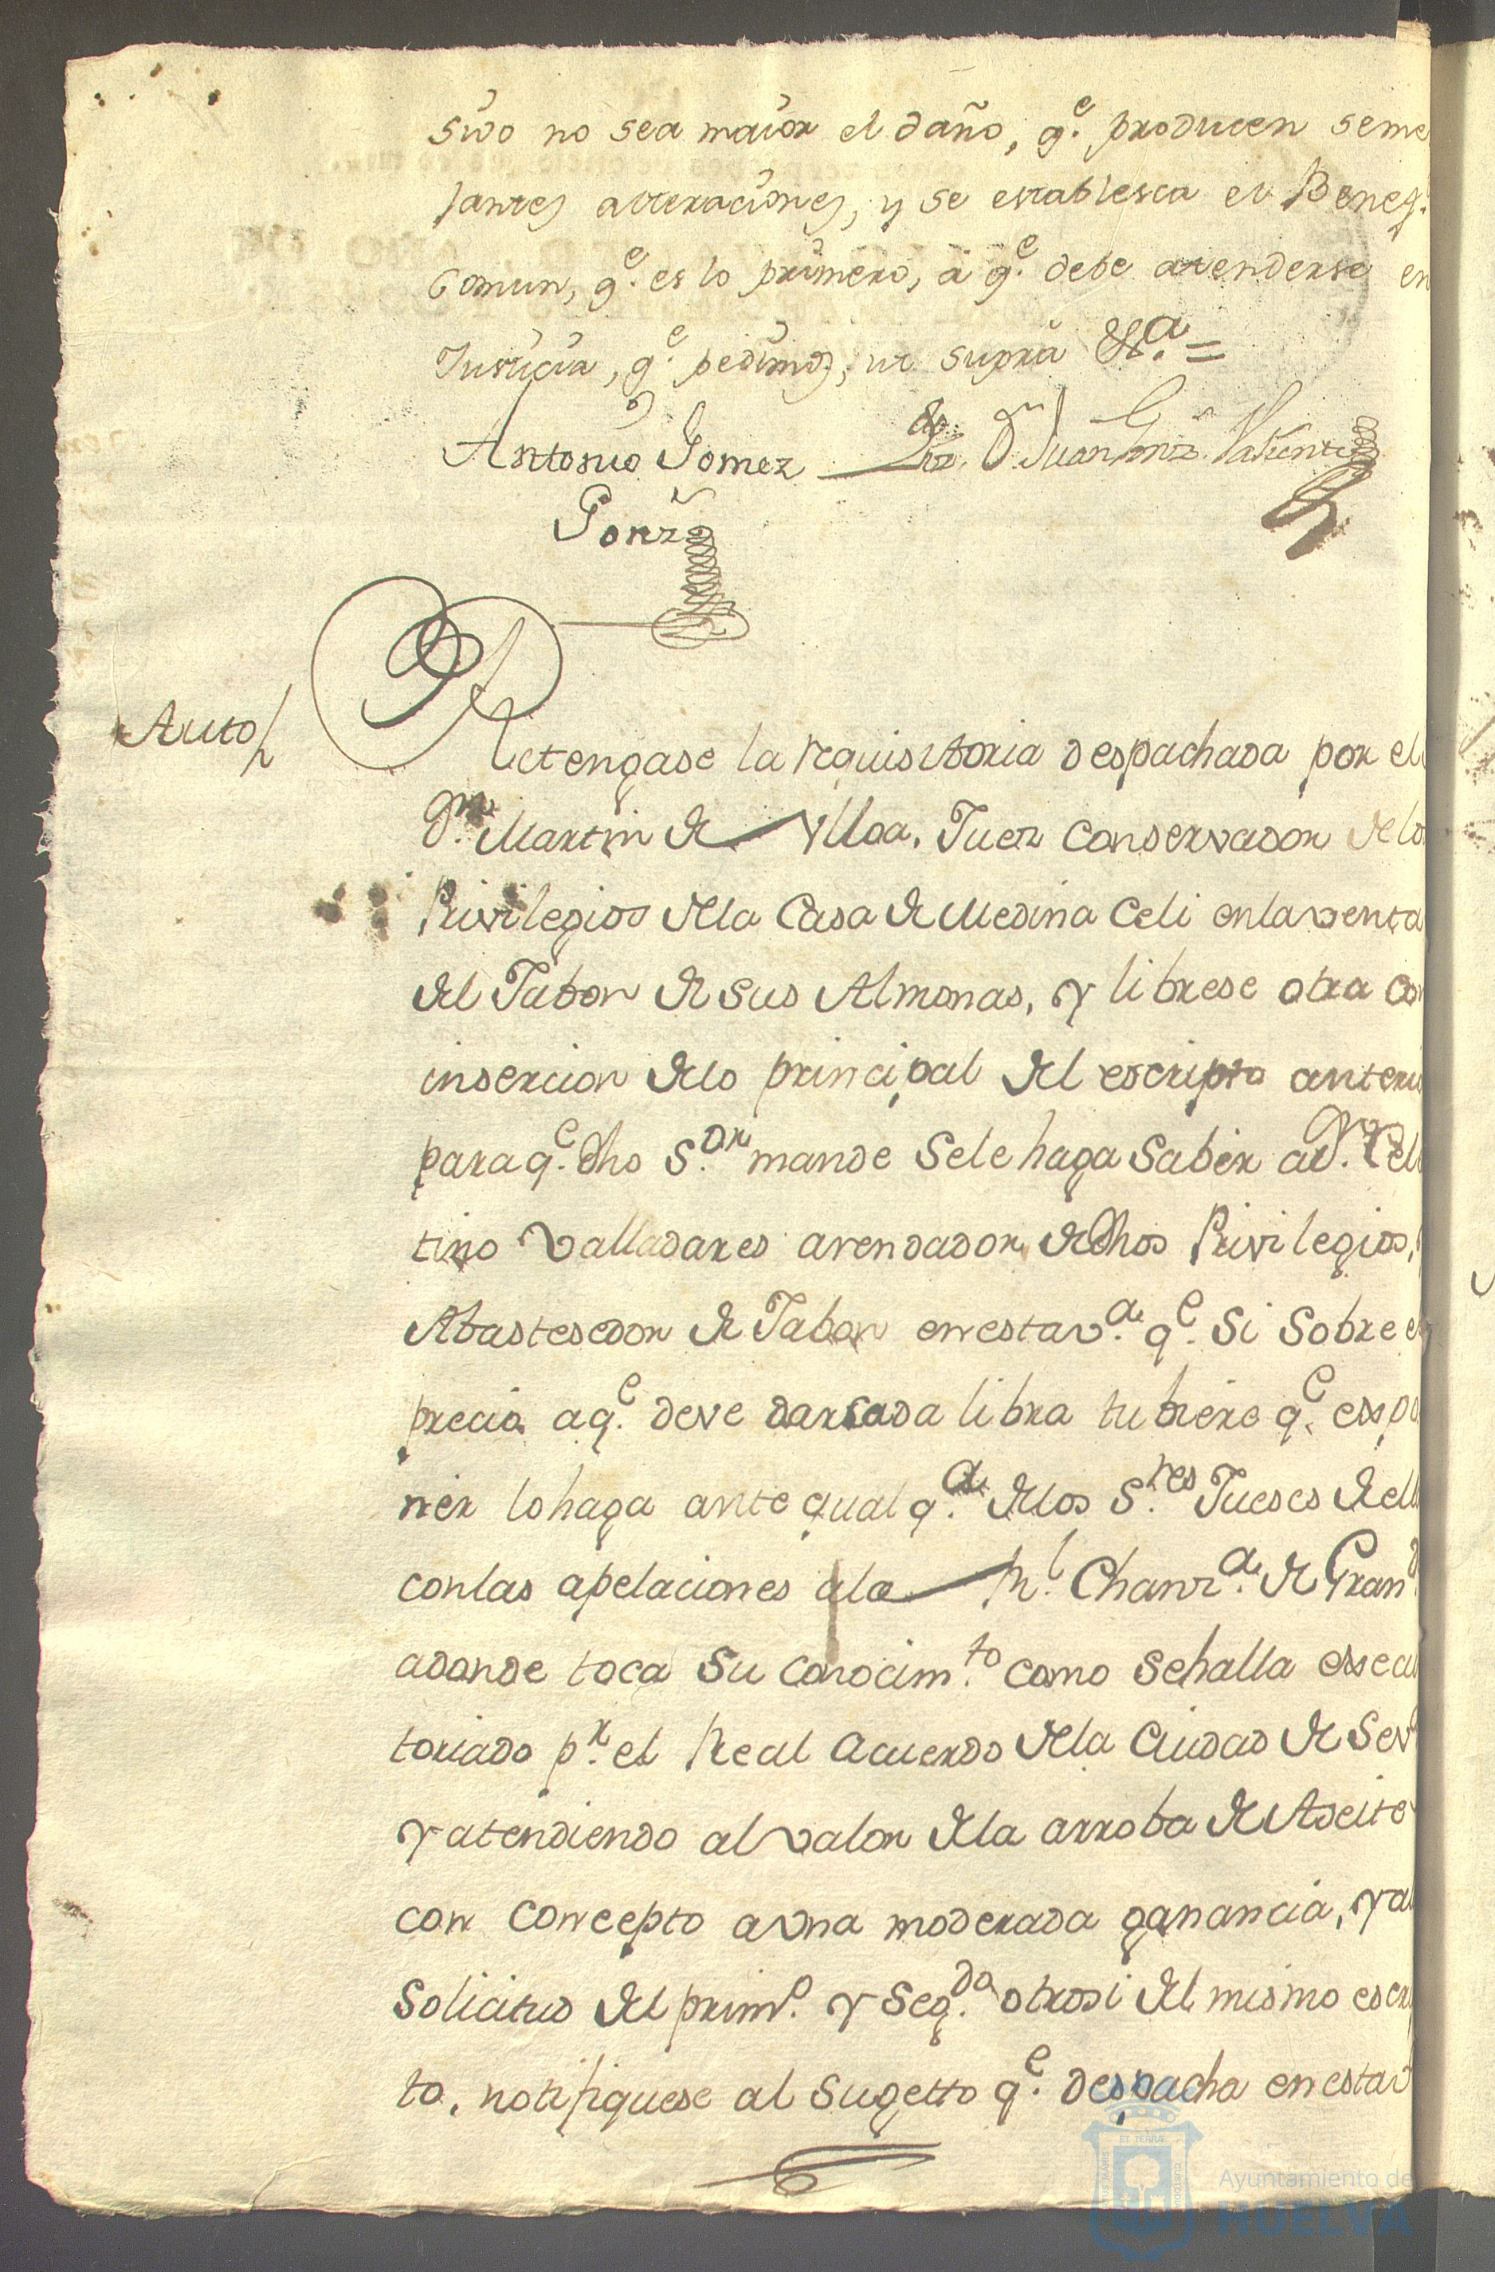 sivo no sea maior el daño, q.e producen seme
jantes alteraciones, y se establesca el Benef.
Comun, q.e es lo primero, á q.e debe atenderse en
Justicia, q.e pedimos, ut supra &.a =
Antonio Gomez Liz.do D.n Juan
Gonz.
Auto
Retengase la requisitoria despachada por el
D.n Martin de Ylloa, Juez Conservador de lo
Privilegios dela Casa de Medina Celi enla venta
del Jabon de sus Almonas, y librese otra co
insercion delo principal del escripto anteri
para q.e dho S.or mande Sele haga Saber a D.n Cele
tino Valladares arendador de dhos Privilegios,
Abastesedor de Jabon en esta v.a q.e Si Sobre e
precio aq.e deve dar cada libra tubiere q.e espo
ner lo haga ante qual q.a delos S.res Jueses de ell
con las apelaciones ala R.l Chanz.a de Gran.
adonde toca su conocim.to como Sehalla essecu
toriado p.r el Real Acuerdo dela Ciudad de Sev
y atendiendo al valor dela arroba de Aseite
con concepto a una moderada ganancia, y al
Solicitud del prim.o y Seg.do otrosi del mismo escri
to, notifiquese al Sugetto q.e despacha en esta v
Ayuntamiento de
HUELVA